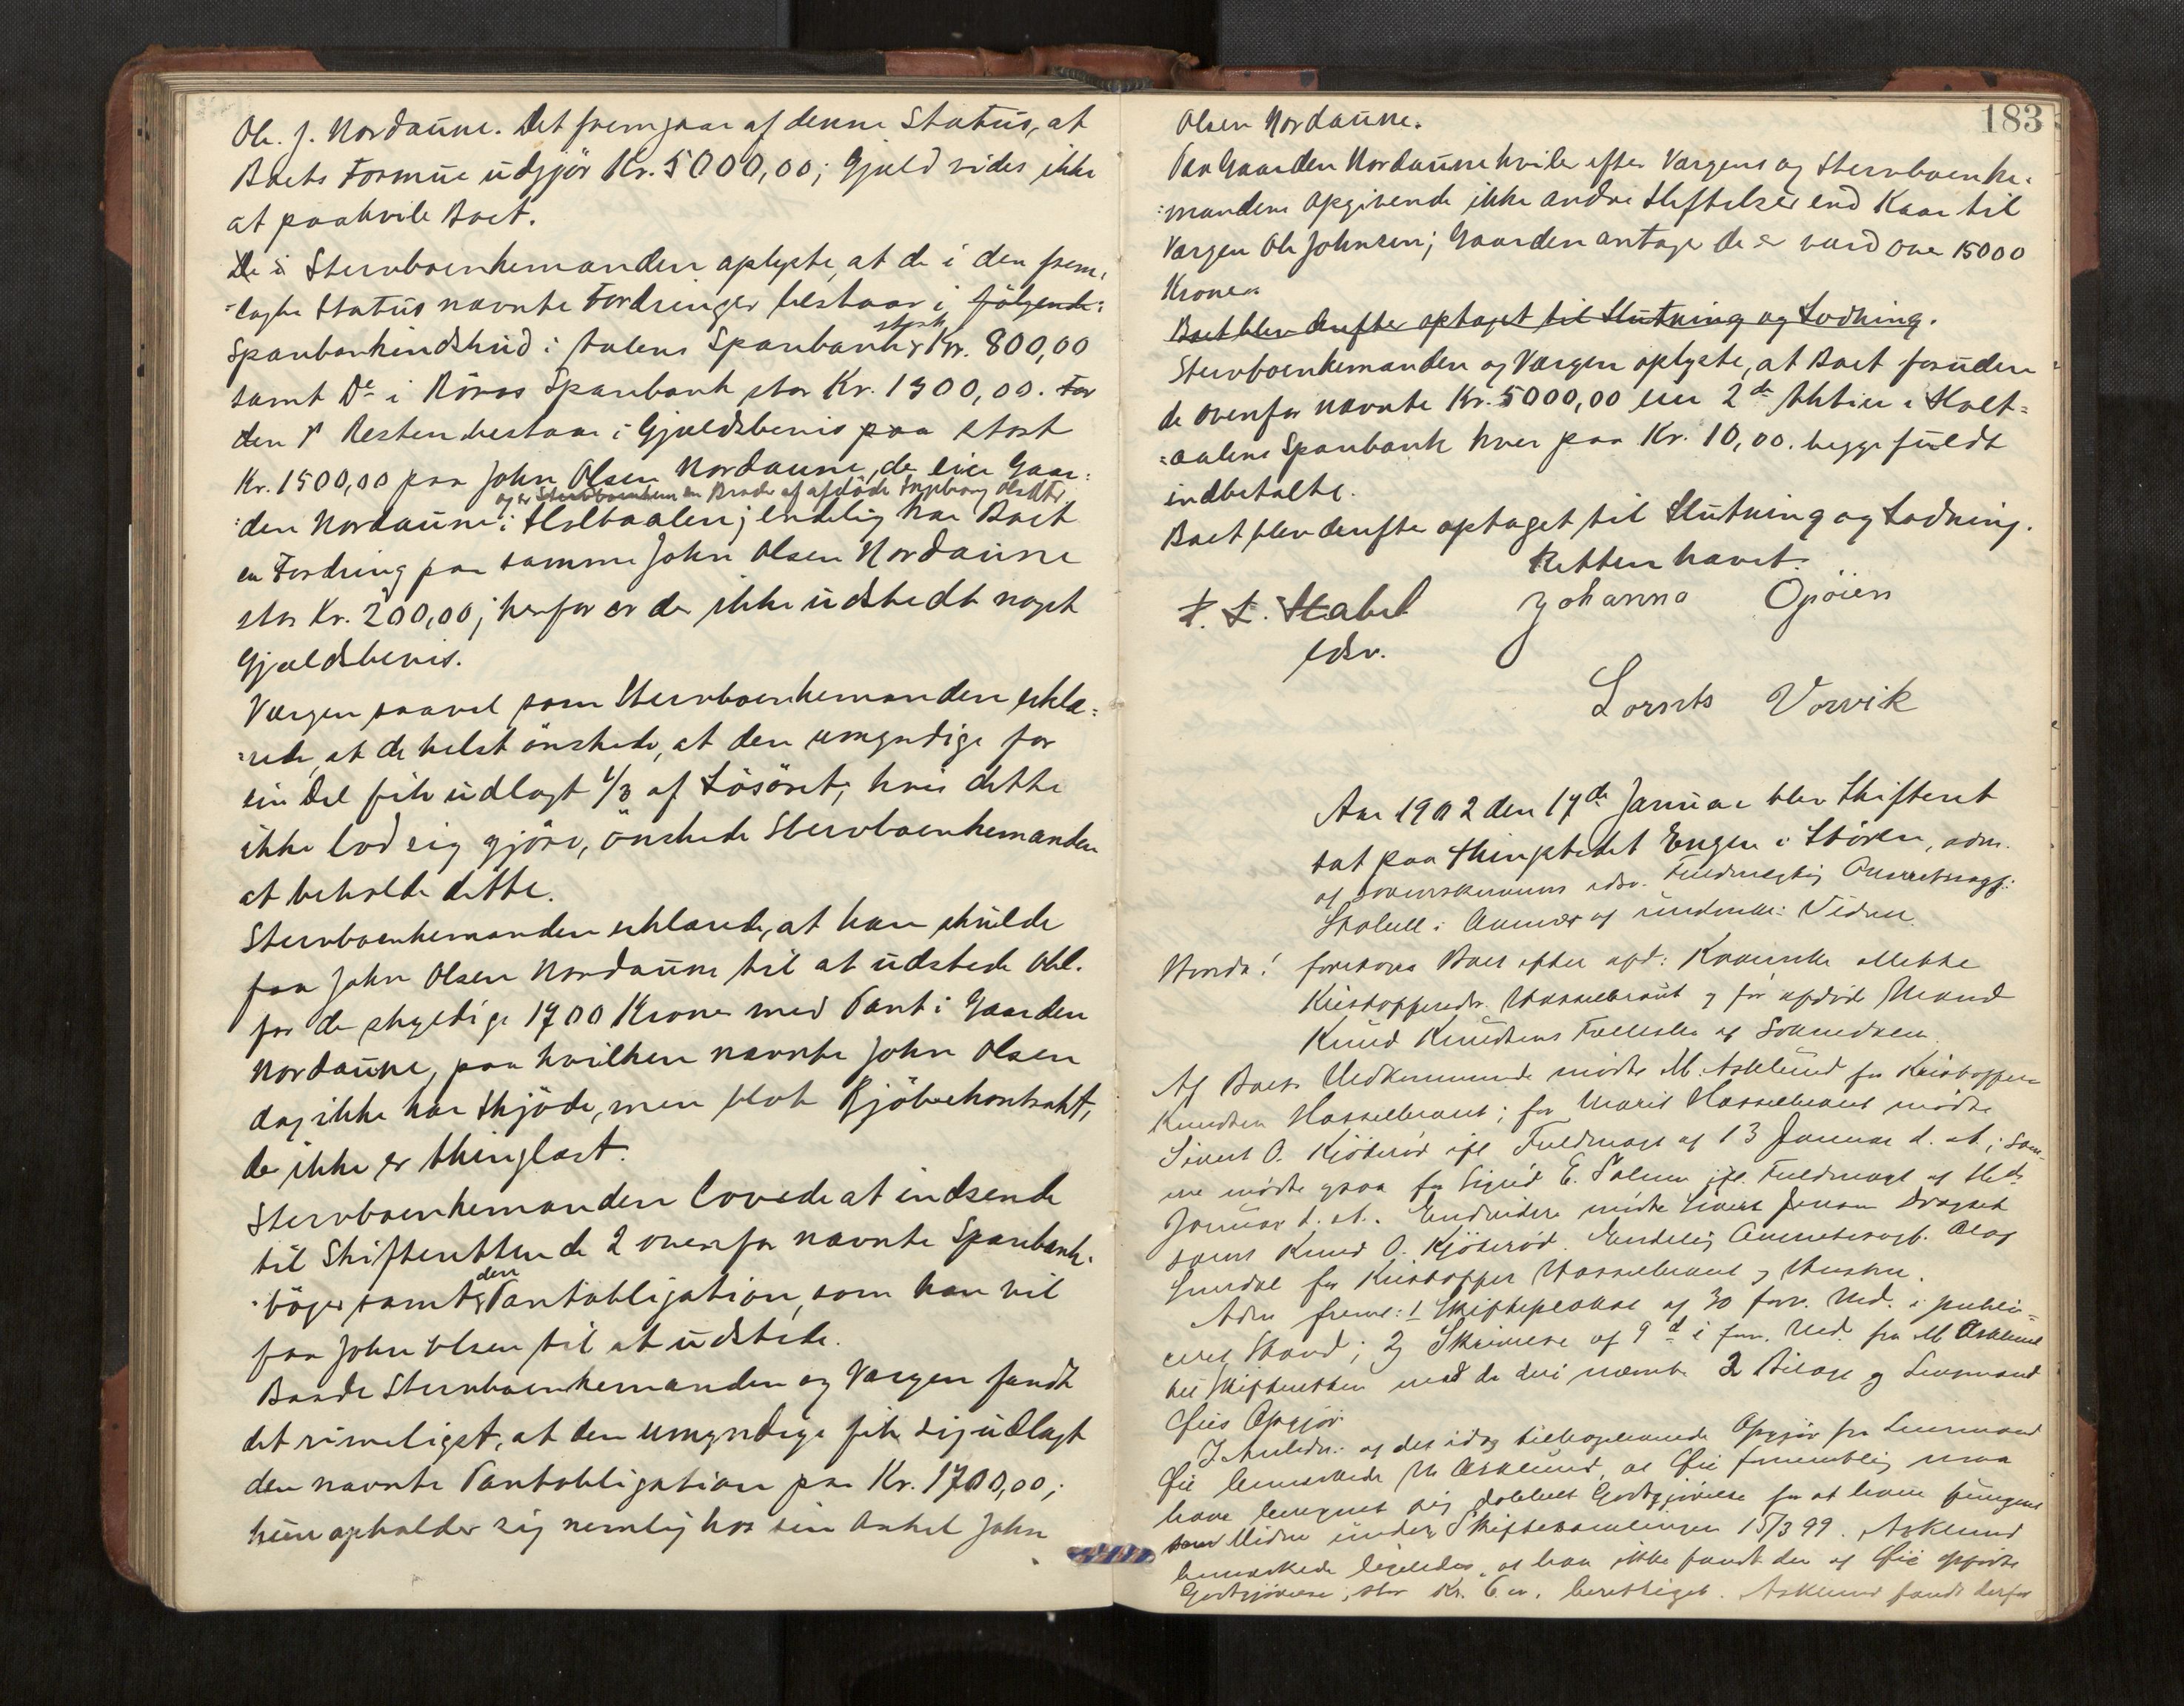 Ole. J. Nordaune. Det fremgaar af denne Status, at
Boets Formue udgjör Kr. 5000,00; Gjæld vides ikke
at paahvile Boet.
Stervboenkemanden oplyste, at de i den frem-
=lagte Status nævnte Fordringer bestaar i følgende:
Sparebankindskud i Aalens Sparebank stort Kr. 800,00
samt Do i Röros Sparebank stor Kr. 1300,00. For
den Resten bestaar i Gjældsbevis paa stort
Kr. 1500,00 paa John Olsen Nordaune, der eier Gaar=
og er Stervboenkem en Broder af afdöde Ingeborg Olsdtr
=den Nordaune i Holtaalen; endelig har Boet
en Fordring paa samme John Olsen Nordaune
stor Kr. 200,00; herfor er der ikke udstedt noget
Gjældsbevis.
Værgen saavel som Stervboenkemanden erklæ=
=rede, at de helst önskede, at den umyndige for
sin Del fik udlagt 1/3 af Lösöret; hvis dette
ikke lod sig gjöre, önskede Stervboenkemanden
at beholde dette.
Stervboenkemanden erklærede, at han skulde
faa John Olsen Nordaune til at udstede Obl.
for de skyldige 1700 Kroner med Pant i Gaarden
Nordaune, paa hvilken nævnte John Olsen
dog ikke har Skjöde, men blot Kjöbekontrakt,
der ikke er thinglæst.
Stervboenkemanden lovede at indsende
til Skifteretten de 2 ovenfor nævnte Sparebank-
=böger samt den Pantobligation, som han vil
faa John Olsen til at udstede.
Baade Stervboenkemanden og Værgen fandt
det rimeligst, at den umyndige fik sig udlagt
den nævnte Pantobligation paa Kr. 1700,00;
hun opholder sig nemlig hos sin Onkel John
183
Olsen Nordaune.
Paa Gaarden Nordaune hviler efter Værgens og Stervboenke=
=mandens Opgivende ikke andre Heftelser end Kaar til
Værgen Ole Johnsen; Gaarden antager de er værd over 15000
Kroner.
Boet blev derefter optaget til Slutning og Lodning.
Stervboenkemanden og Værgen oplyste, at Boet foruden
de ovenfor nævnte Kr. 5000,00 eier 2de Aktier i Holt=
=aalens Sparebank hver paa Kr. 10,00. begge fuldt
indbetalte.
Boet blev derefter optaget til Slutning og Lodning.
Retten hævet.
F. L. Stabel
edsv.
Johanna Opöien
Lornts Vorvik
Aar 1902 den 17de Januar blev Skifteret
sat paa Thingstedet Engen i Stören, adm.
af Sorenskriverens edsv. Fuldmægtig Overretssagf.
i Nærvær af undertegn. Vidner.
Hvorda! foretoges Boet efter afd. Mette
Kristoffersdtr. Hasselbraut og før afdöde Mand
Knud Knudsens Fællesbo af Soknedalen.
Af Boets Vedkommende mödte M. Asklund for Kristoffer
Knudsen Hasselbraut; for Marit Hasselbraut mödte
Sivert O. Kjöteröd ifl. Fuldmagt af 13 Januar d. A.; Sam-
me mödte ogsaa for Sigrid E. Solem ifl. Fuldmagt af
Januar d. A. Endvidere mödte Sivert Jensen Dragset
samt Knud O. Kjöteröd. Endelig Overretssagf. Olaf
for Kristoffer Hasselbraut og Hustru.
Adm. freml. 1 Skifteproklama af 30 forr. Md. i publi=
ceret Stand; 2) Skrivelse af 9d i forr. Md. fra M Asklund
til Skifteretten med de deri nævnte 2 Bilage og Lensmand
Öies Opgjör
I Anledn. af det idag tilbagekomne Opgjör fra Lensmand
Öie bemærkede M Asklund, at Öie formentlig maa
have beregnet sig dobbelt Godtgjörelse for at have fungeret
som Vidne under Skiftesamlingen 15/3 99. Asklund
bemærkede ligeledes, at han ikke fandt den af Öie opförte
Godtgjörelse, stor Kr. 6.00, berettiget. Asklund fandt derfor